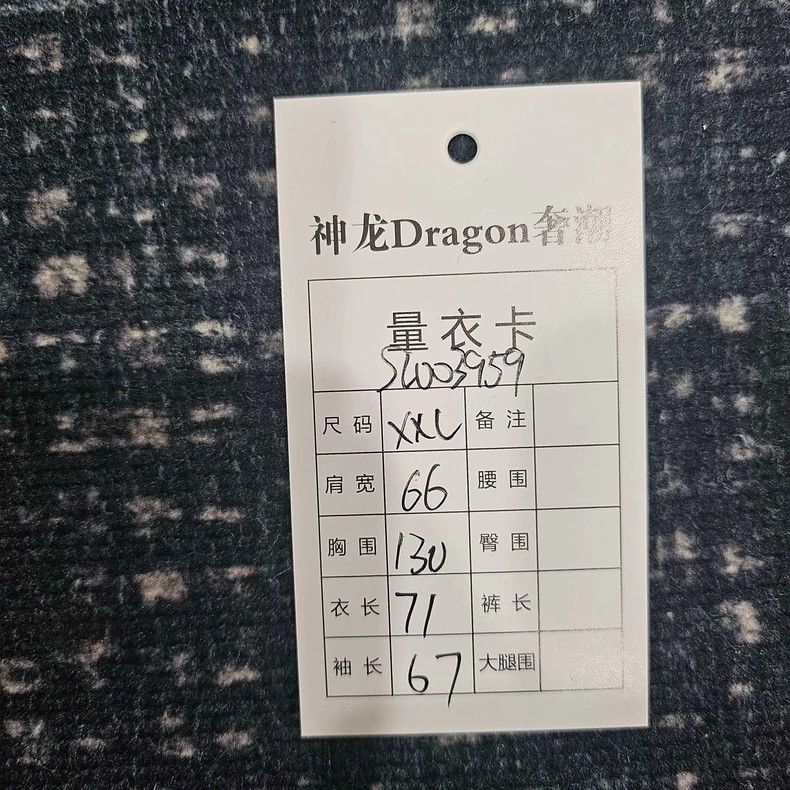 神龙Dragon奢潮
量衣卡
SL003959
尺码 XXL 备注
肩宽 66 腰围
胸围 130 臀围
衣长 71 裤长
袖长 67 大腿围